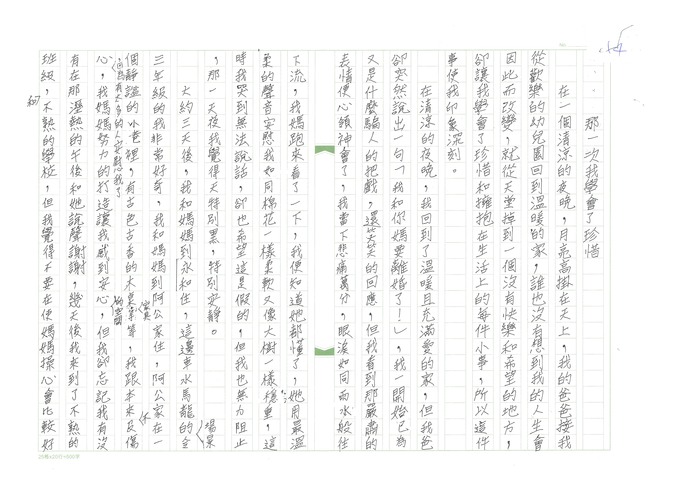 那一次我學會了珍惜
在一個清涼的夜晚,月亮高掛在天上,我的爸爸接我
從歡樂的幼兒園回到溫暖的家,誰也沒有想到我的人生會
因此而改變,就從天堂掉到一個沒有快樂和希望的地方,
卻讓我學會了珍惜和擁抱在生活上的每件小事,所以這件
事使我印象深刻。
在清涼的夜晚,我回到了溫暖且充滿愛的家,但我爸
卻突然說出一句「我和你媽要離婚了!」,我一開始已為
又是什麼騙人的把戲,還笑笑的回應,但我看到那嚴肅的
表情便心領神會了,我當下悲痛萬分,眼淚如同雨水般往
下流,我媽跑來看了一下,我便知道她都懂了,她用最溫
柔的聲音安慰我如同棉花一樣柔軟又像大樹一樣穩重,這
時我哭到無法說話,卻也希望這是假的,但我也無力阻止
,那一天夜我覺得天特別黑,特別安靜。
大約三天後,我和媽媽到永和住,這邊車水馬龍的
場景
三年級的我非常好奇,我和媽媽到阿公家住,阿公家在一
個靜謐的小巷裡,有古色古香的木
家具
等,我跟本來反傷
心,我媽媽努力的打造讓我感到安心
的空間
,但我卻忘記我有沒
有在那溫熱的午後和她說聲謝謝,幾天後我來到了不熟的
班級,不熟的學校,但我覺得不要在使媽媽操心會比較好